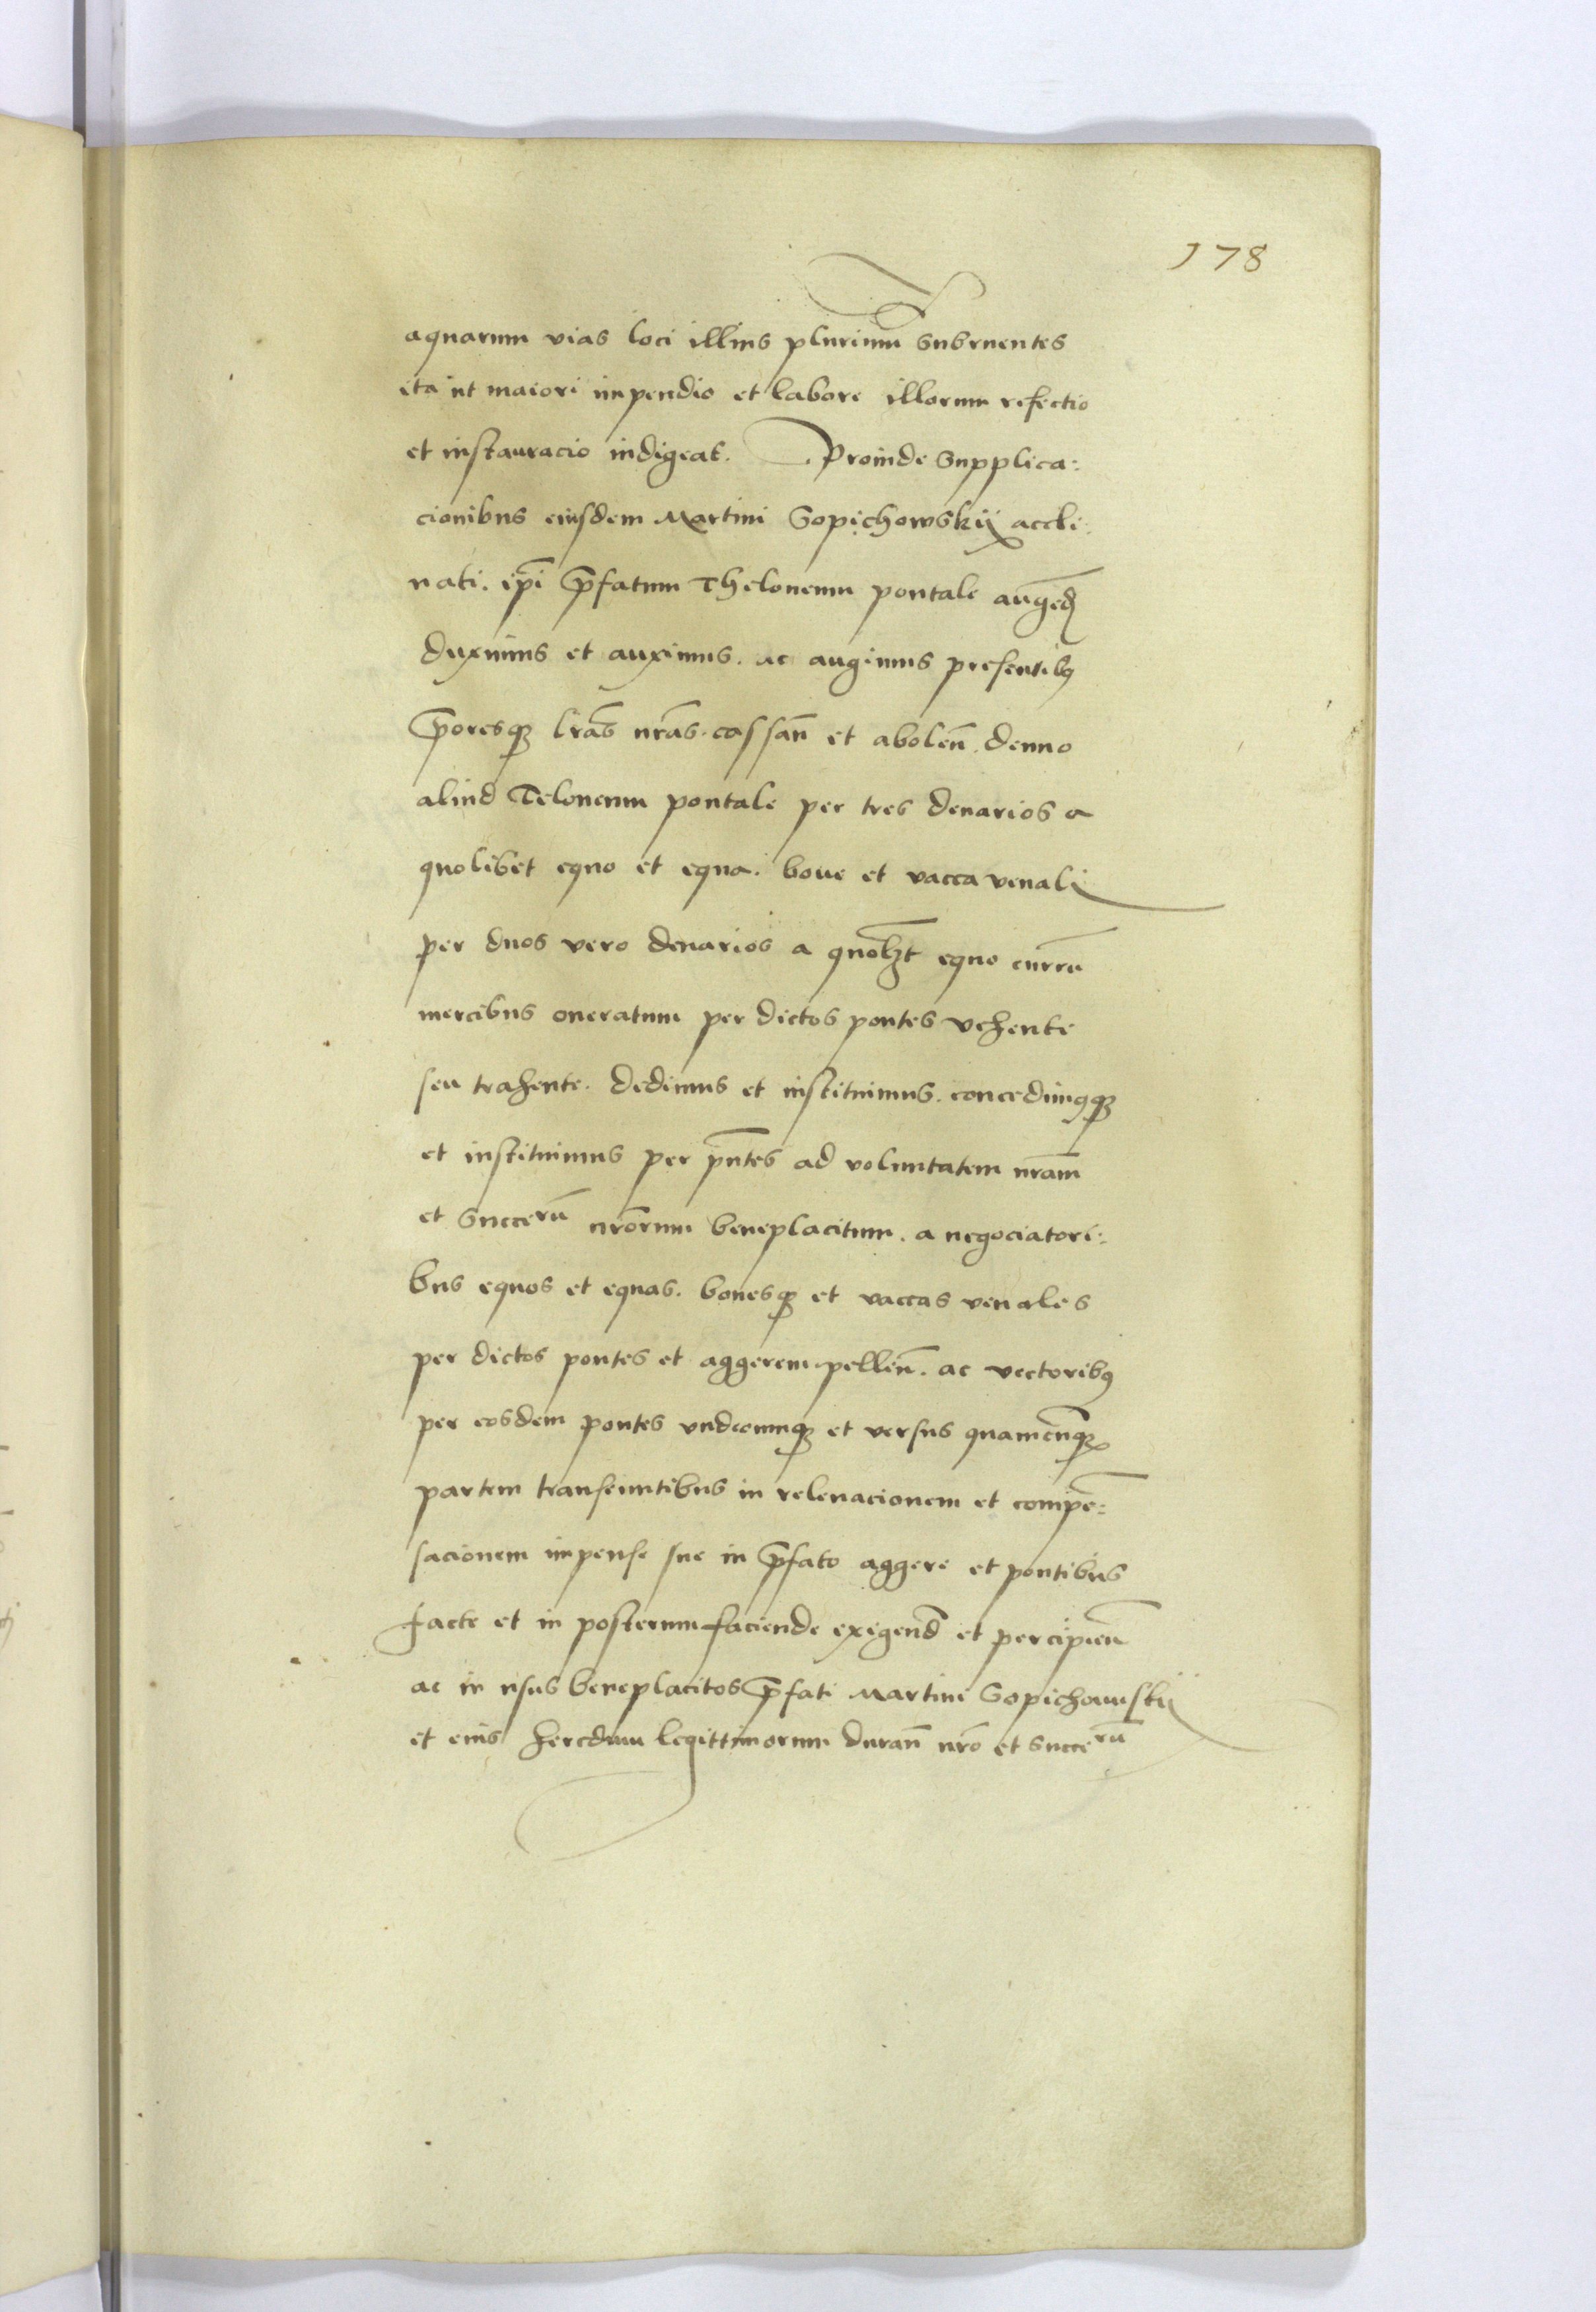 178
aquarum vias loci illius plurimū subruentes
ita ut maiori impendio et labore illorum refectio
et instauracio indigeat. Proinde supplica:
cionibus eiusdem Martini Sopichowskij accli:
nati. ip̄i p̄fatum Theloneum pontale augēd
duximus et auximus. ac augimus presentibꝯ
p̄oresqꝫ l̄ras n̄ras. cassan̄ et abolen̄. denuo
aliud Teloneum pontale per tres denarios a
quolibet equo et equa. boue et vacca venali
per duos vero denarios a quolꝫt equo currū
mercibus oneratum per dictos pontes vehente
seu trahente. dedimus et instituimus. concedimꝯqꝫ
et instituimus per pn̄tes ad voluntatem nr̄am
et succerū nr̄orum beneplacitum. a negociatori:
bus equos et equas. bouesqꝫ et vaccas venales
per dictos pontes et aggerem pellen̄. ac vectoribꝯ
per eosdem pontes vndecumqꝫ et versus quamcūqꝫ
partem transeuntibus in releuacionem et compē:
sacionem impense sue in p̄fato aggere et pontibus
facte et in posterum faciende exigend̄ et percipien̄
ac in usus beneplacitos p̄fati Martini Sopichowskij
et eius heredum legittimorum duran̄ nr̄o et succerū